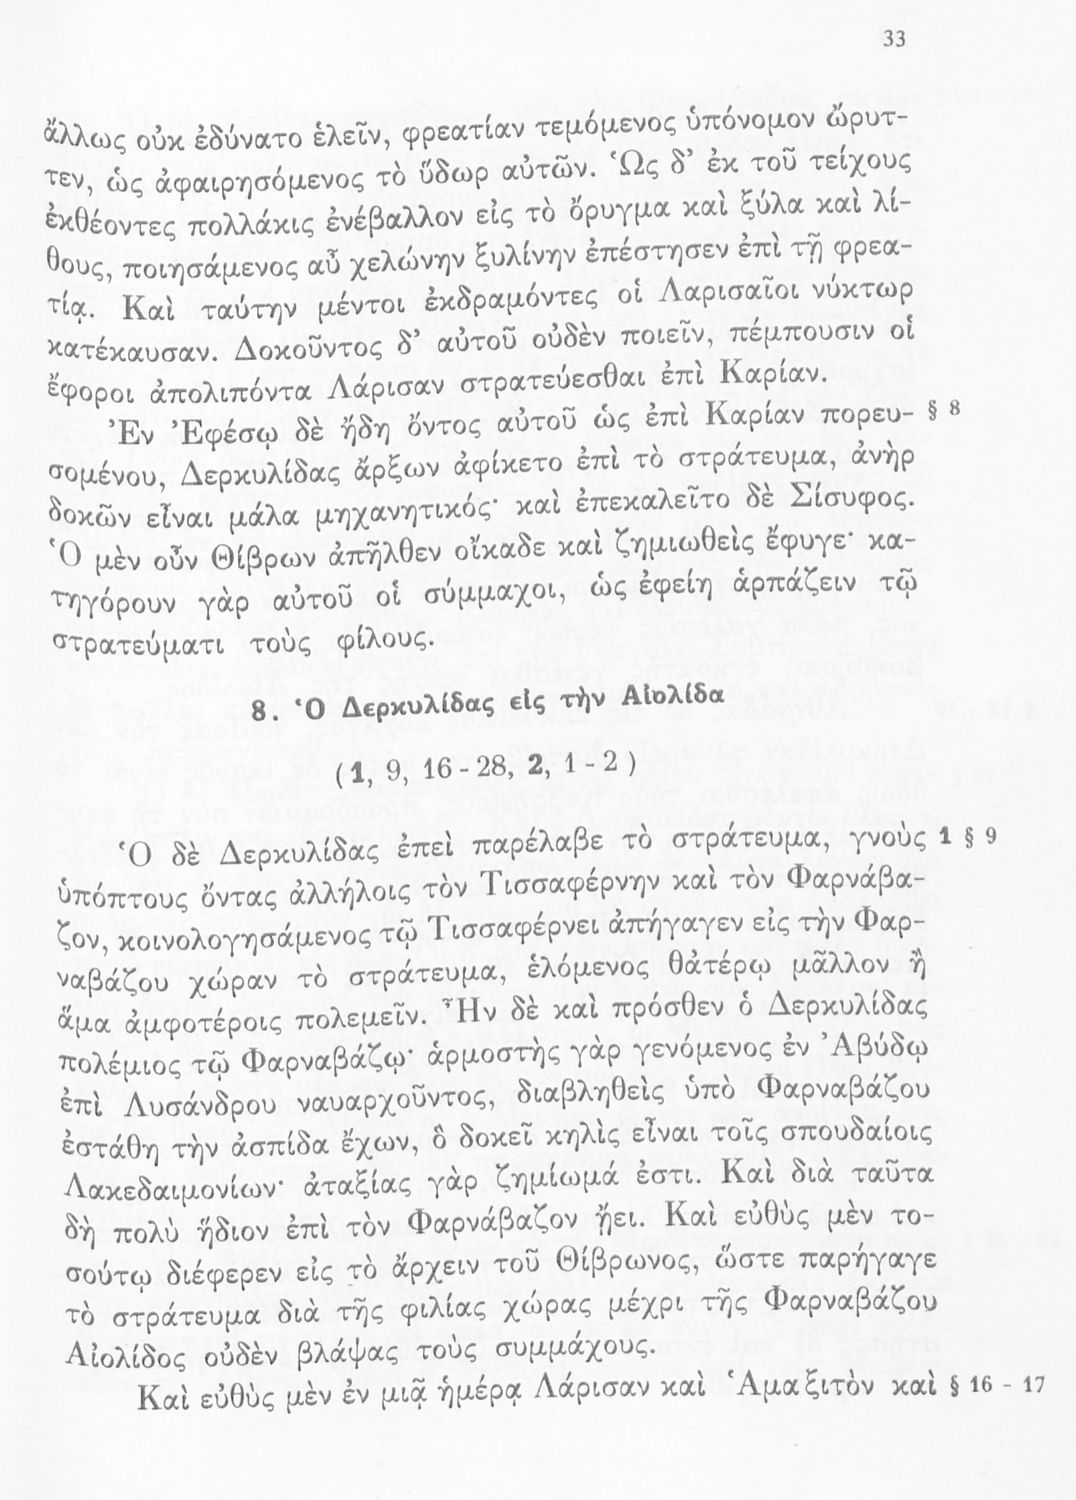 33
ἄλλως οὐκ ἐδύνατο ἑλεῖν, φρεατίαν τεμόμενος ὑπόνομον ὤρυτ-
τεν, ὡς ἀφαιρησόμενος τὸ ὕδωρ αὐτῶν. Ὡς δ' ἐκ τοῦ τείχους
ἐκθέοντες πολλάκις ἐνέβαλλον εἰς τὸ ὄρυγμα καὶ ξύλα καὶ λί-
θους, ποιησάμενος αὖ χελώνην ξυλίνην ἐπέστησεν ἐπὶ τῇ φρεα-
τίᾳ. Καὶ ταύτην μέντοι ἐκδραμόντες οἱ Λαρισαῖοι νύκτωρ
κατέκαυσαν. Δοκοῦντος δ' αὐτοῦ οὐδὲν ποιεῖν, πέμπουσιν οἱ
ἔφοροι ἀπολιπόντα Λάρισαν στρατεύεσθαι ἐπὶ Καρίαν.
Ἐν Ἐφέσῳ δὲ ἤδη ὄντος αὐτοῦ ὡς ἐπὶ Καρίαν πορευ- § 8
σομένου, Δερκυλίδας ἄρξων ἀφίκετο ἐπὶ τὸ στράτευμα, ἀνὴρ
δοκῶν εἶναι μάλα μηχανητικός· καὶ ἐπεκαλεῖτο δὲ Σίσυφος.
Ὁ μὲν οὖν Θίβρων ἀπῆλθεν οἴκαδε καὶ ζημιωθεὶς ἔφυγε· κα-
τηγόρουν γὰρ αὐτοῦ οἱ σύμμαχοι, ὡς ἐφείη ἁρπάζειν τῷ
στρατεύματι τοὺς φίλους.
8. Ὁ Δερκυλίδας εἰς τὴν Αἰολίδα
(1, 9, 16 - 28, 2, 1 - 2 )
Ὁ δὲ Δερκυλίδας ἐπεὶ παρέλαβε τὸ στράτευμα, γνοὺς 1 § 9
ὑπόπτους ὄντας ἀλλήλοις τὸν Τισσαφέρνην καὶ τὸν Φαρνάβα-
ζον, κοινολογησάμενος τῷ Τισσαφέρνει ἀπήγαγεν εἰς τὴν Φαρ-
ναβάζου χώραν τὸ στράτευμα, ἑλόμενος θατέρῳ μᾶλλον ἢ
ἅμα ἀμφοτέροις πολεμεῖν. Ἦν δὲ καὶ πρόσθεν ὁ Δερκυλίδας
πολέμιος τῷ Φαρναβάζῳ· ἁρμοστὴς γὰρ γενόμενος ἐν Ἀβύδῳ
ἐπὶ Λυσάνδρου ναυαρχοῦντος, διαβληθεὶς ὑπὸ Φαρναβάζου
ἐστάθη τὴν ἀσπίδα ἔχων, ὃ δοκεῖ κηλὶς εἶναι τοῖς σπουδαίοις
Λακεδαιμονίων· ἀταξίας γὰρ ζημίωμά ἐστι. Καὶ διὰ ταῦτα
δὴ πολὺ ἥδιον ἐπὶ τὸν Φαρνάβαζον ᾔει. Καὶ εὐθὺς μὲν το-
σούτῳ διέφερεν εἰς τὸ ἄρχειν τοῦ Θίβρωνος, ὥστε παρήγαγε
τὸ στράτευμα διὰ τῆς φιλίας χώρας μέχρι τῆς Φαρναβάζου
Αἰολίδος οὐδὲν βλάψας τοὺς συμμάχους.
Καὶ εὐθὺς μὲν ἐν μιᾷ ἡμέρᾳ Λάρισαν καὶ Ἁμαξιτὸν καὶ § 16 - 17